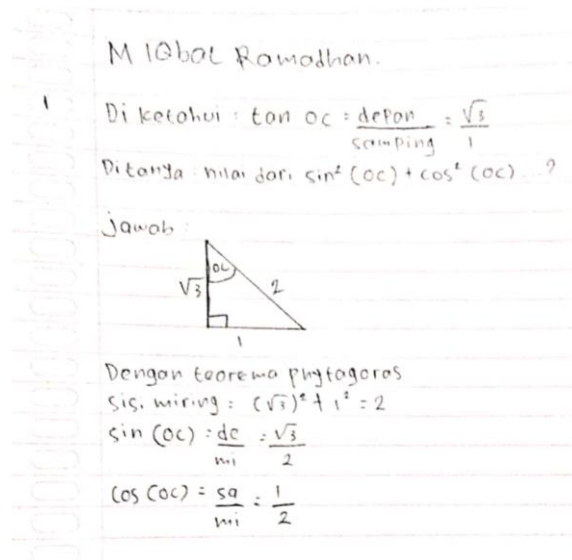 M IQbal Ramadhan.
1
Di ketahui : tan α = depan/samping = √3/1
Ditanya : nilai dari sin² (α) + cos² (α) ... ?
jawab :
α
√3
2
1
Dengan teorema phytagoras
sisi miring : (√3)² + 1² = 2
sin (α) = de/mi = √3/2
cos (α) = sa/mi = 1/2